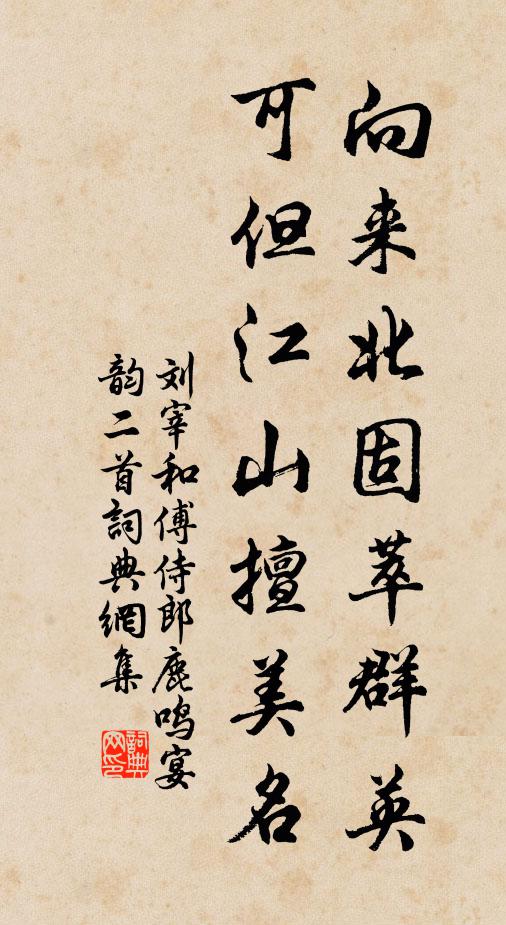 向来北固萃群英
可但江山擅美名
刘宰和傅侍郎鹿鸣宴
韵二首詞典網集
詞典
网印